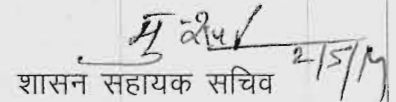 2/5/14
शासन सहायक सचिव